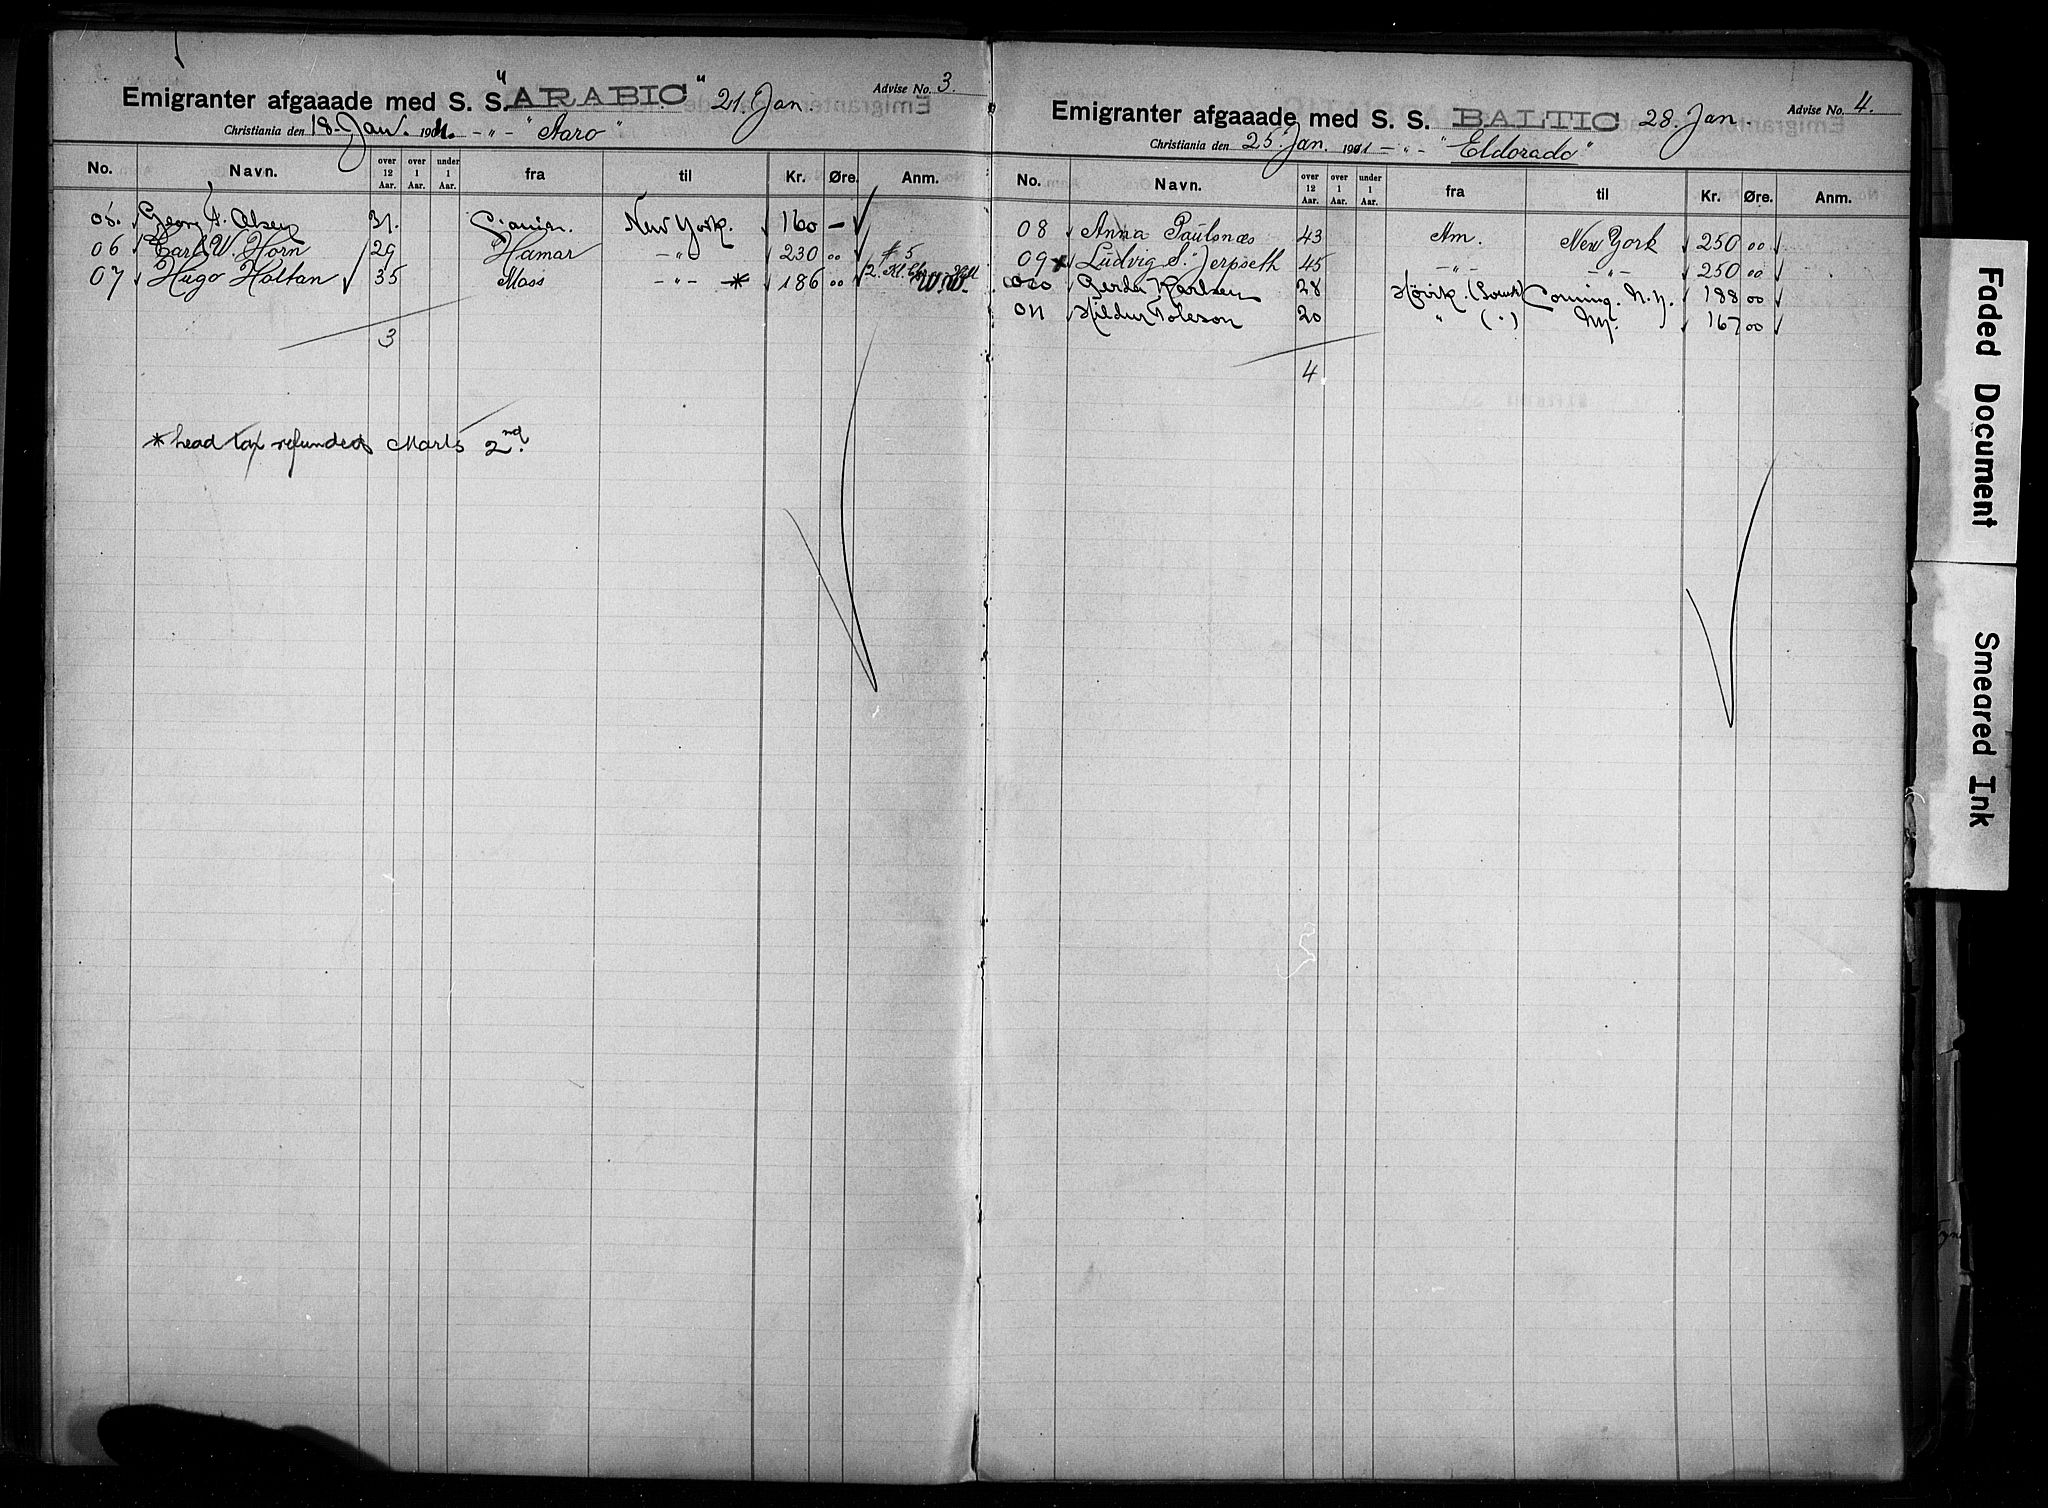 Emigranter afgaaade med S. S. "ARABIC" 21. Jan Advise No. 3.
Christiania den 18. Jan. 1901. -"- "Aaro"
No. Navn. over 12 Aar. over 1 Aar. under 1 Aar. fra til Kr. Øre. Anm.
05. Georg A. Olsen 31. New York. 160 -
06 Carl W. Horn 29 Hamar -"- 230 00 5
07 Hugo Holtan 35 Moss -"- * 186 00 2. Kl.
3
* head tax refunded Marts 2nd.
Emigranter afgaaade med S. S. BALTIC 28. Jan. Advise No. 4.
Christiania den 25. Jan. 1901 -"- "Eldorado"
No. Navn. over 12 Aar. over 1 Aar. under 1 Aar. fra til Kr. Øre. Anm.
08 Anna Paulsnæs 43 Am. New York 250 00
09 x Ludvig S. Jerpseth 45 -"- -"- 250 00
010 Gerda Karlsen 28 Corning. N.Y. 188 00
011 Hildur Toleson 20 " (") NY. 167 00
4
Faded Document
Smeared Ink